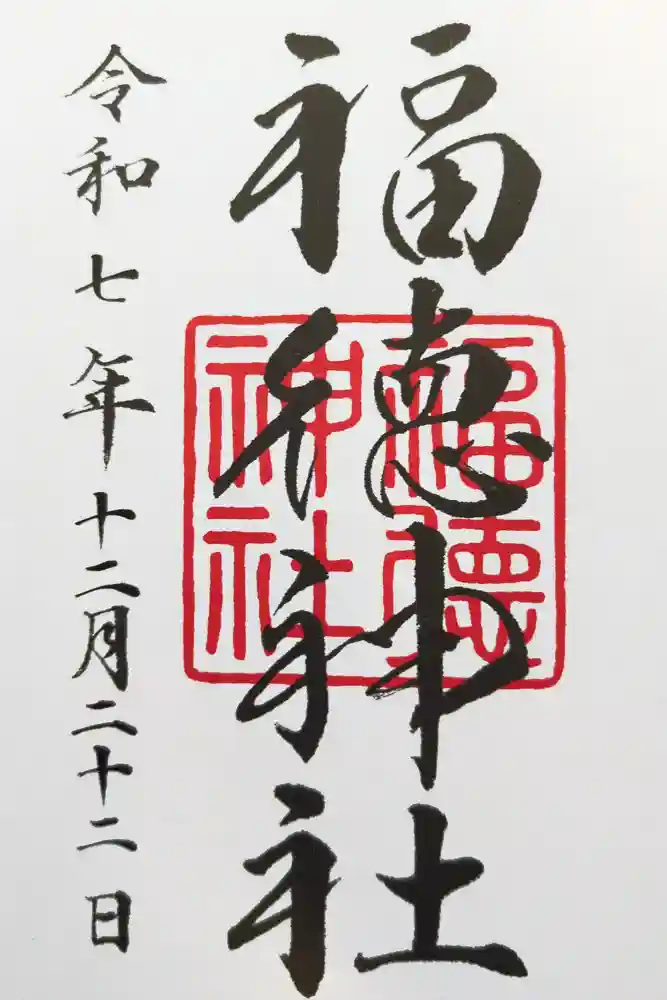 福徳神社
福徳神社
令和七年十二月二十二日